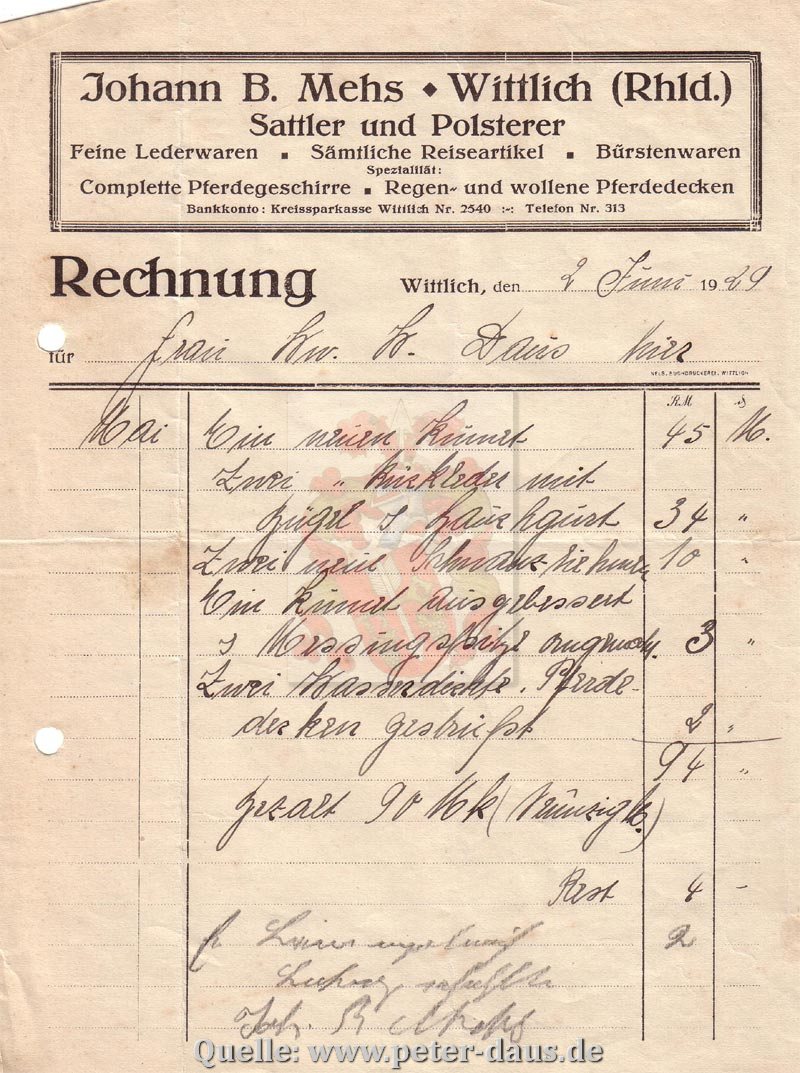 Johann B. Mehs ◆ Wittlich (Rhld.)
Sattler und Polsterer
Feine Lederwaren ▪ Sämtliche Reiseartikel ▪ Bürstenwaren
Spezialität:
Complette Pferdegeschirre ▪ Regen- und wollene Pferdedecken
Bankkonto: Kreissparkasse Wittlich Nr. 2540 :-: Telefon Nr. 313
Rechnung Wittlich, den 2 Juni 1929
für Frau Ww. W. Daus hier
BUCHDRUCKEREI, WITTLICH
RM
Mai Ein neuen Kumet 45 M.
Zwei " mit
Zügel & Bauchgurt 34 "
Zwei neue Schwanzriehmen 10 "
Ein Kumet ausgebessert
& Messingspitze angemacht. 3 "
Zwei Wasserdichte Pferde-
decken 2 "
94 "
gezalt 90 Mk (Neunzig M.)
Rest 4 -
2
Joh. B. Mehs
Quelle: www.peter-daus.de